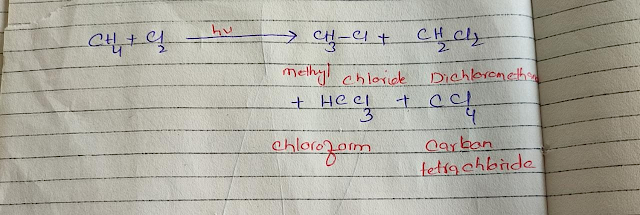 CH4 + Cl2 hν → CH3-Cl + CH2Cl2
methyl chloride Dichloromethan
+ HCCl3 + CCl4
chloroform Carban
tetrachloride